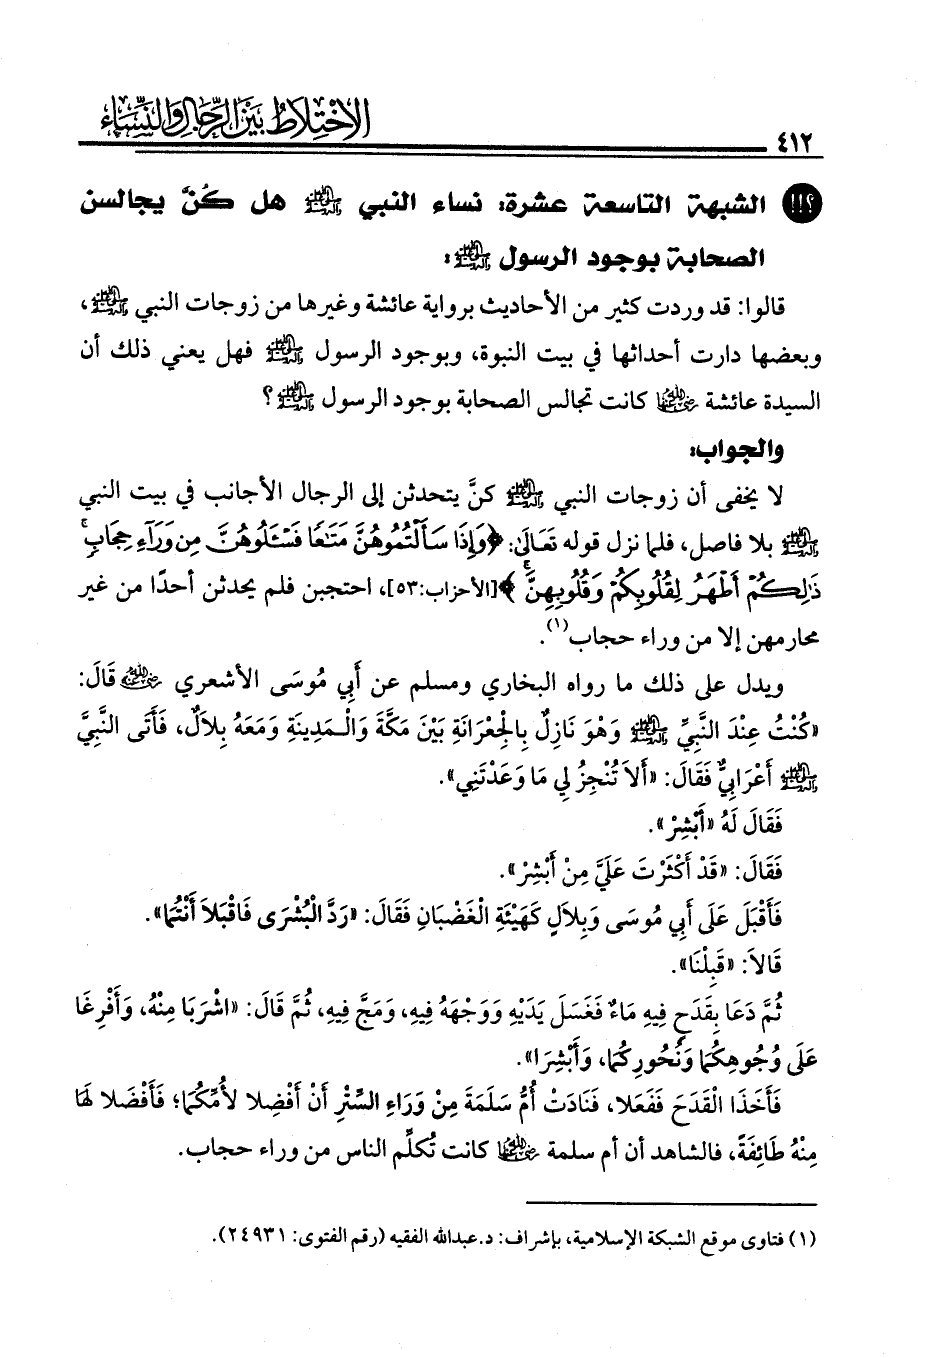 الاختلاط بين الرجال والنساء
٤١٢
الشبهة التاسعة عشرة: نساء النبي ﷺ هل كُنَّ يجالسن
الصحابة بوجود الرسول ﷺ :
قالوا: قد وردت كثير من الأحاديث برواية عائشة وغيرها من زوجات النبي ﷺ،
وبعضها دارت أحداثها في بيت النبوة، وبوجود الرسول ﷺ فهل يعني ذلك أن
السيدة عائشة رضي الله عنها كانت تجالس الصحابة بوجود الرسول ﷺ؟
والجواب:
لا يخفى أن زوجات النبي ﷺ كنَّ يتحدثن إلى الرجال الأجانب في بيت النبي
ﷺ بلا فاصل، فلما نزل قوله تَعَالَى: ﴿وَإِذَا سَأَلْتُمُوهُنَّ مَتَٰعًا فَسْـَٔلُوهُنَّ مِن وَرَآءِ حِجَابٍۚ
ذَٰلِكُمْ أَطْهَرُ لِقُلُوبِكُمْ وَقُلُوبِهِنَّۚ﴾[الأحزاب:٥٣]، احتجبن فلم يحدثن أحدًا من غير
محارمهن إلا من وراء حجاب(١).
ويدل على ذلك ما رواه البخاري ومسلم عن أَبِي مُوسَى الأشعري رضي الله عنه قَالَ:
«كُنْتُ عِنْدَ النَّبِيِّ ﷺ وَهوَ نَازِلٌ بِالْجِعْرَانَةِ بَيْنَ مَكَّةَ وَالْـمَدِينَةِ وَمَعَهُ بِلاَلٌ، فَأَتَى النَّبِيَّ
ﷺ أَعْرَابِيٌّ فَقَالَ: «أَلاَ تُنْجِزُ لِي مَا وَعَدْتَنِي».
فَقَالَ لَهُ «أَبْشِرْ».
فَقَالَ: «قَدْ أَكْثَرْتَ عَلَيَّ مِنْ أَبْشِرْ».
فَأَقْبَلَ عَلَى أَبِي مُوسَى وَبِلاَلٍ كَهَيْئَةِ الْغَضْبَانِ فَقَالَ: «رَدَّ الْبُشْرَى فَاقْبَلاَ أَنْتُمَا».
قَالاَ: «قَبِلْنَا».
ثُمَّ دَعَا بِقَدَحٍ فِيهِ مَاءٌ فَغَسَلَ يَدَيْهِ وَوَجْهَهُ فِيهِ، وَمَجَّ فِيهِ، ثُمَّ قَالَ: «اشْرَبَا مِنْهُ، وَأَفْرِغَا
عَلَى وُجُوهِكُمَا وَنُحُورِكُمَا، وَأَبْشِرَا».
فَأَخَذَا الْقَدَحَ فَفَعَلا، فَنَادَتْ أُمُّ سَلَمَةَ مِنْ وَرَاءِ السِّتْرِ أَنْ أَفْضِلا لأُمِّكُمَا؛ فَأَفْضَلا لَهَا
مِنْهُ طَائِفَةً، فالشاهد أن أم سلمة رضي الله عنها كانت تُكلِّم الناس من وراء حجاب.
(١) فتاوى موقع الشبكة الإسلامية، بإشراف: د.عبدالله الفقيه (رقم الفتوى: ٢٤٩٣١).